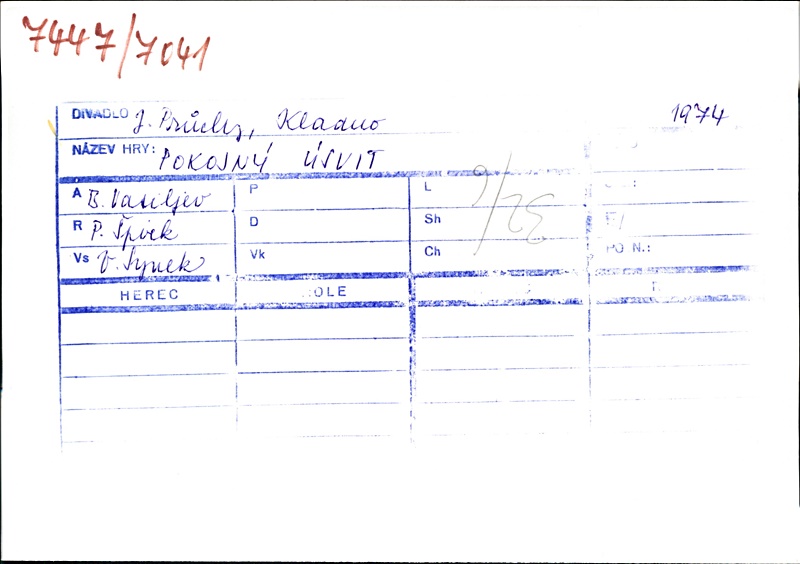 7447/7041
DIVADLO J. Průchy, Kladno 1974
NÁZEV HRY: POKOJNÝ ÚSVIT
A B. Vasiljev P L
R P. Špick D Sh
Vs V. Synek Vk Ch PO N.:
HEREC OLE